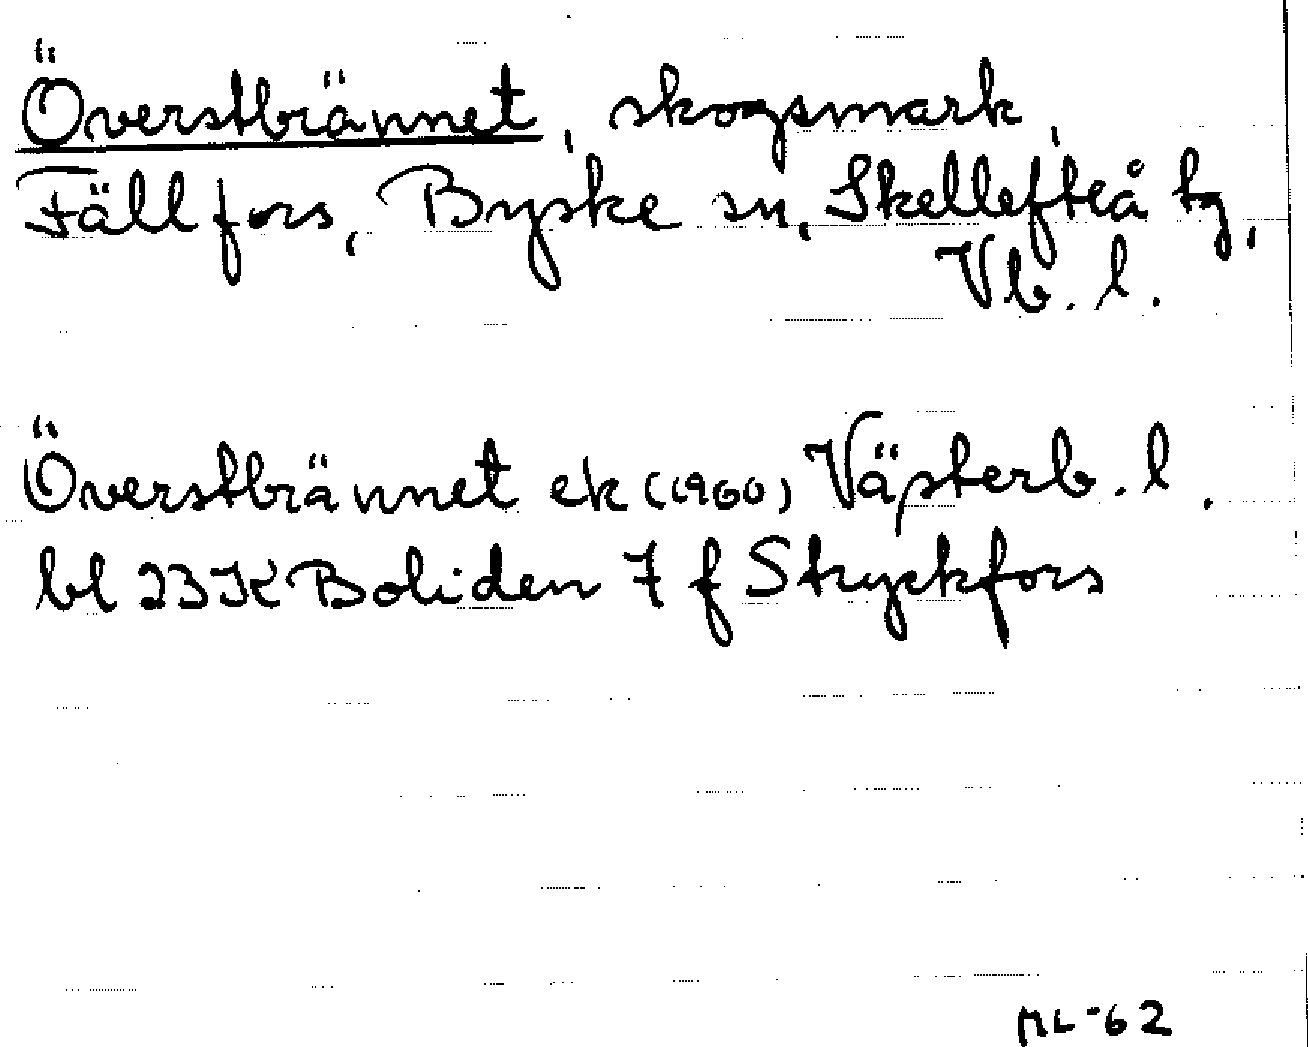 Överstbrännet, skogsmark,
Fällfors, Byske sn, Skellefteå tg,
Vb. l.
Överstbrännet ek (1960) Västerb. l.
bl 23K Boliden 7 f Stryckfors
ML-62